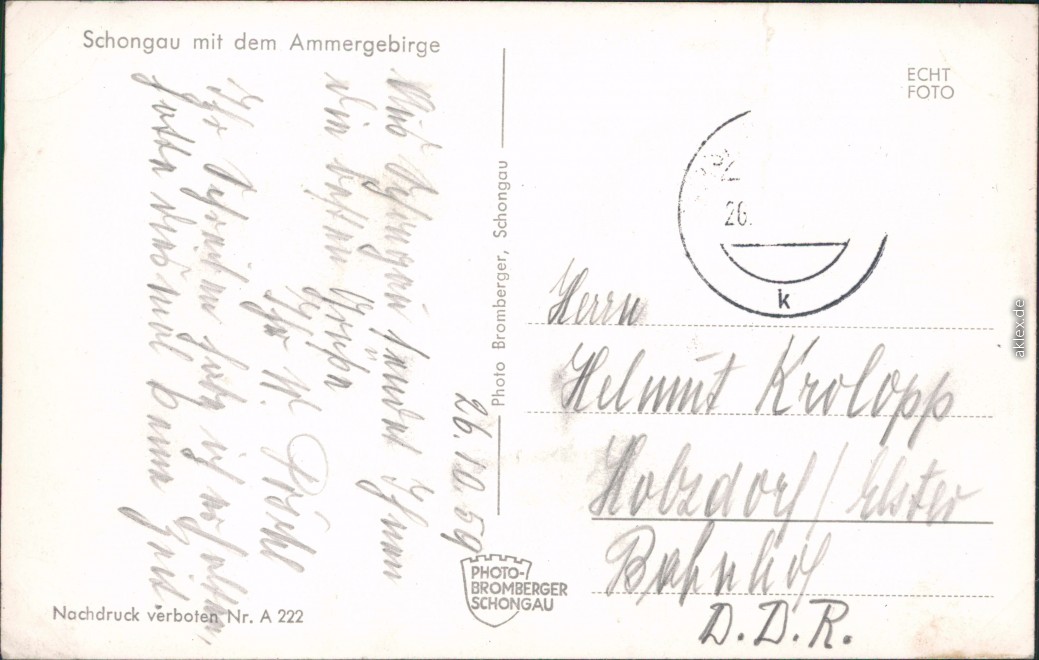 Schongau mit dem Ammergebirge
ECHT
FOTO
26.10.59
Aus Schongau sendet Ihnen
die besten Grüße
Ihr H.
Ihr Schreiben habe ich erhalten,
hatte diesmal keine Zeit
Photo Bromberger, Schongau
26.
k
Herrn
Helmut Krolopp
Holzdorf / Elster
Bahnhof
D.D.R.
PHOTO-
BROMBERGER
SCHONGAU
Nachdruck verboten Nr. A 222
aklex.de